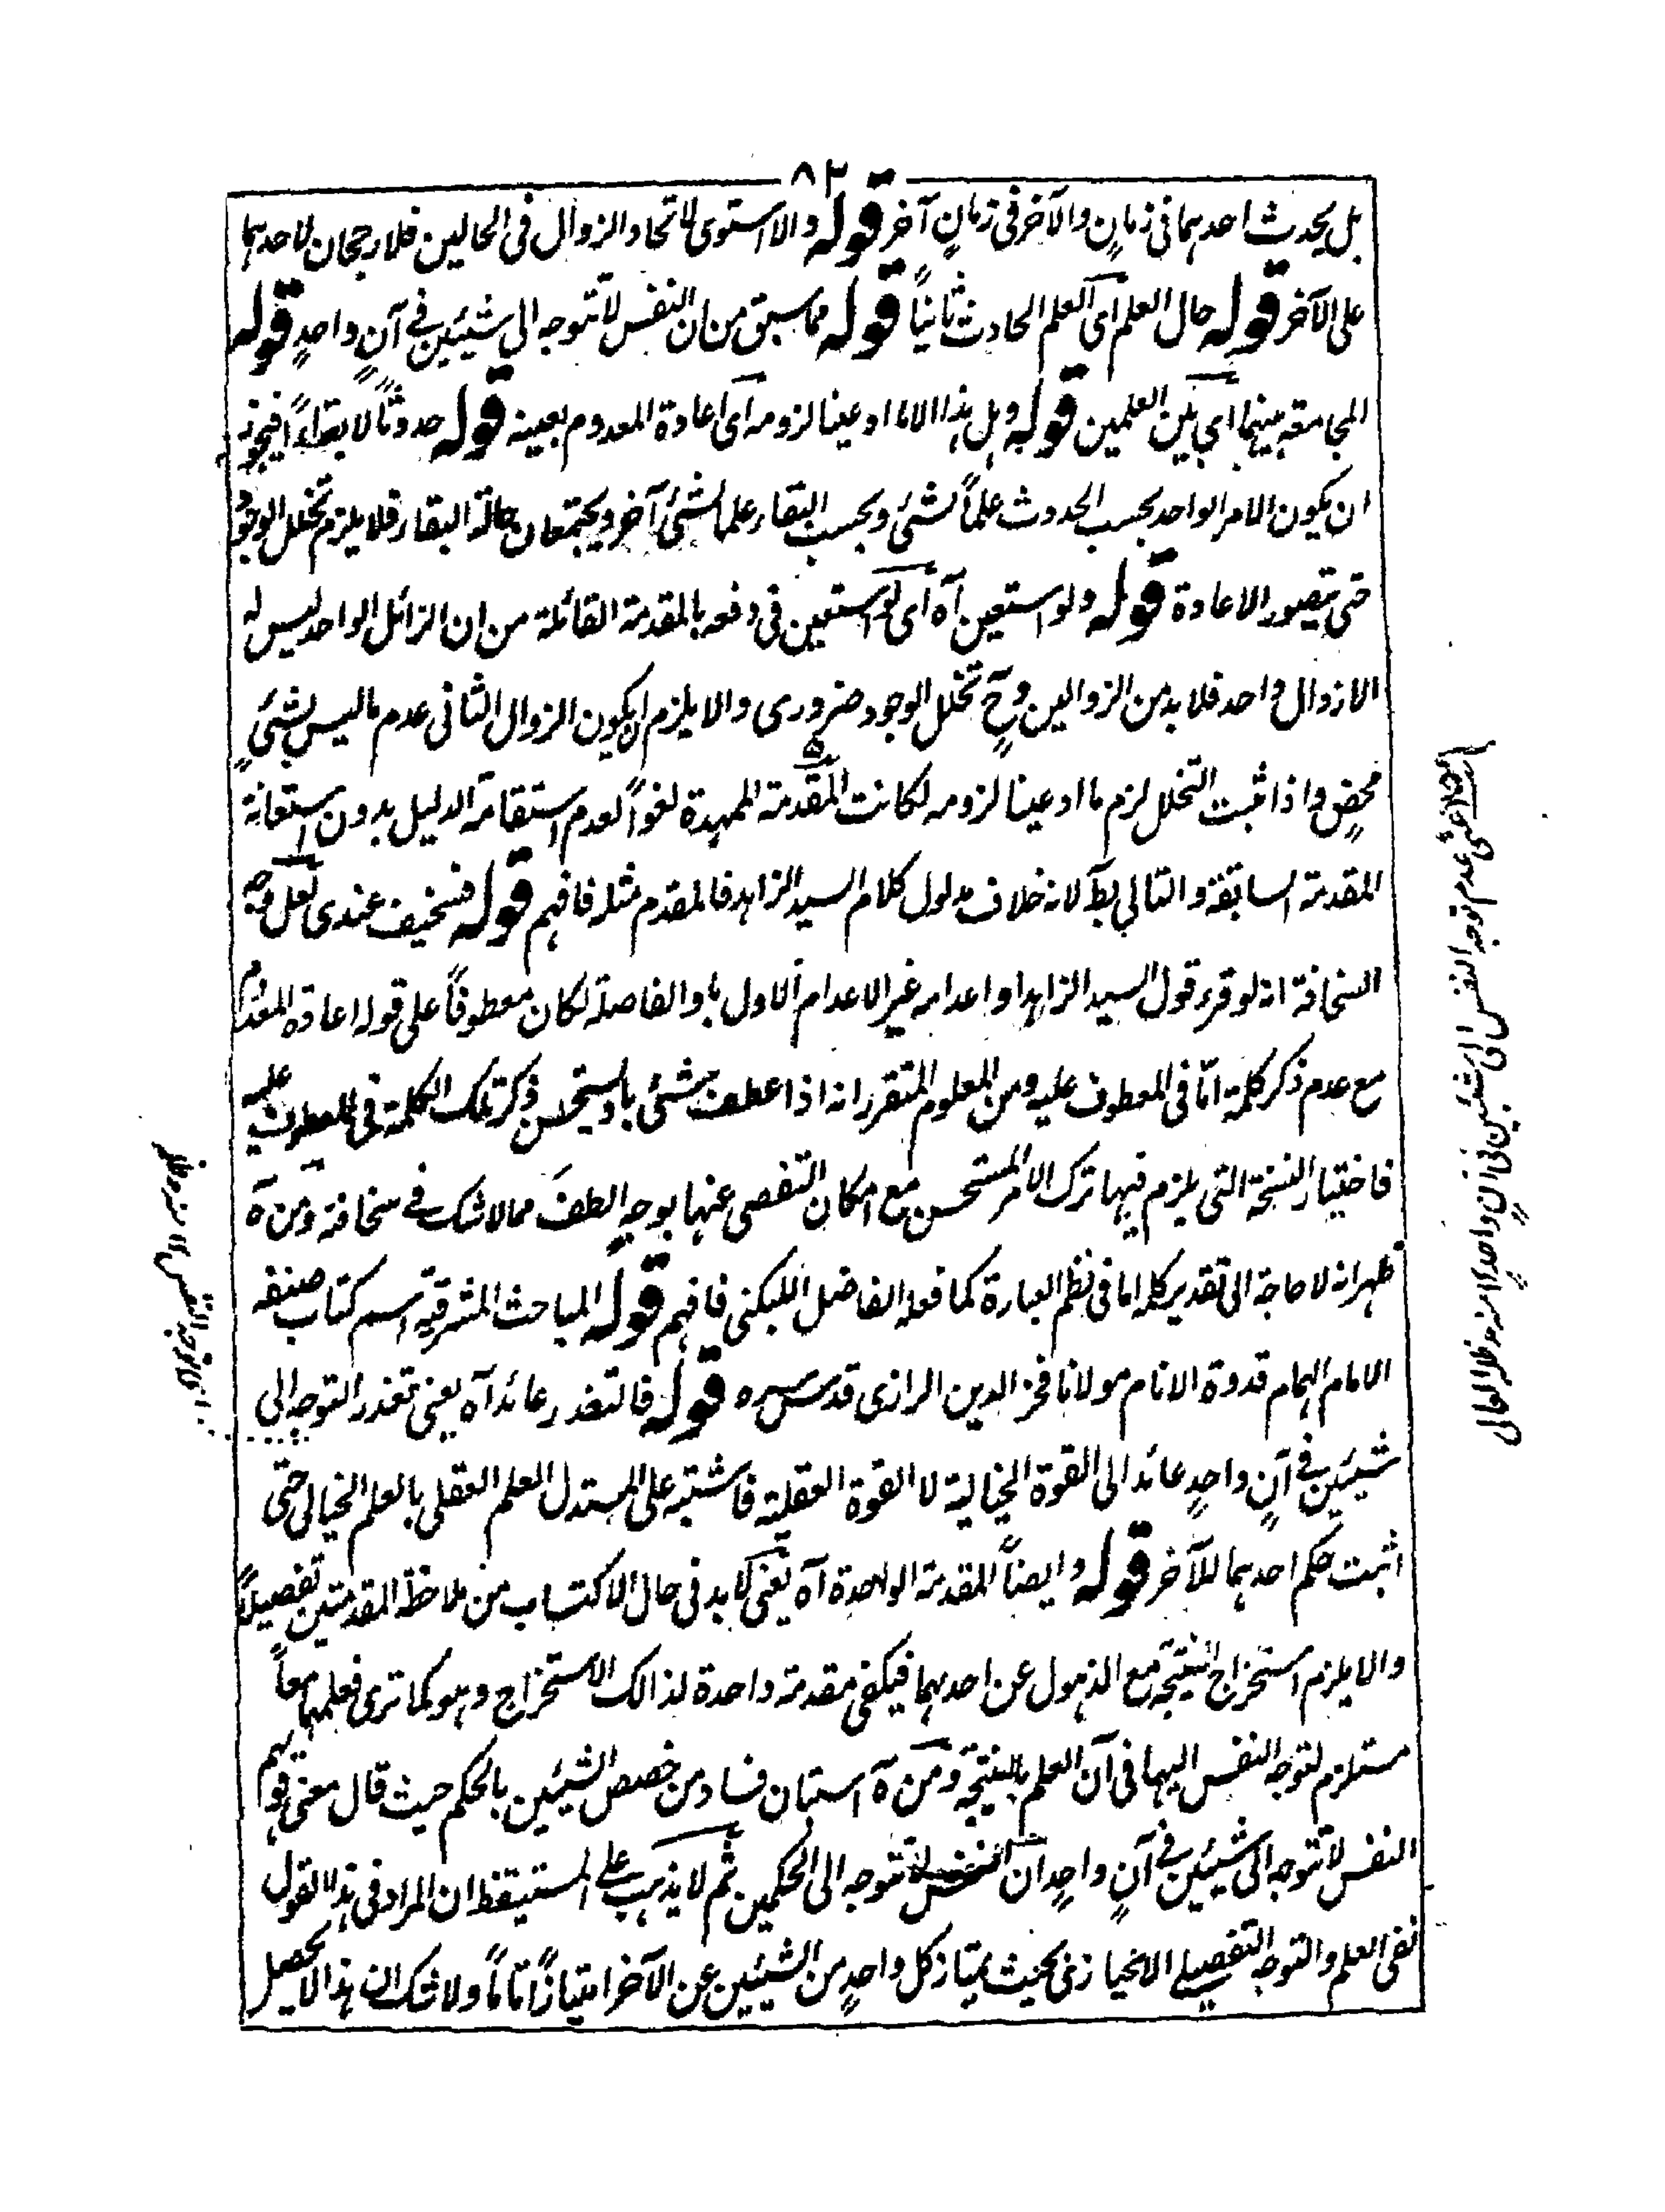 ٨٢
بل يحدث احدهما فى زمانٍ والآخر فى زمانٍ آخر قوله والا استوى الاتحاد والزوال فى الحالين فلا رجحان لاحدهما
على الآخر قوله حال العلم اى العلم الحادث ثانياً قوله مما سبق من ان النفس لا تتوجه الى شيئين فى آنٍ واحدٍ قوله
المجامعة بينهما اى بين العلمين قوله وهل هذا الا ما ادعينا لزومه اى اعادة المعدوم بعينه قوله حدوثاً لا بقاءً فيجوز
ان يكون الامر الواحد بحسب الحدوث علماً لشئ وبحسب البقاء علما لشئ آخر ويجتمعان حالة البقاء فلا يلزم تخلل الوجود
حتى يتصور الاعادة قوله ولو استعين آه اى لو استعين فى دفعه بالمقدمة القائلة من ان الزائل الواحد ليس له
الا زوال واحد فلا بد من الزوالين وح تخلل الوجود ضرورى والا يلزم ان يكون الزوال الثانى عدم ما ليس بشئٍ
محضٍ واذا ثبت التخلل لزم ما ادعينا لزومه لكانت المقدمة الممهدة لغواً لعدم استقامة الدليل بدون استعانة
المقدمة السابقة والتالى بط لانه خلاف مدلول كلام السيد الزاهد فالمقدم مثله فافهم قوله فسخيف عندى لعل وجه
السخافة انه لو قرء قول السيد الزاهد او اعدامه غير الاعدام الاول باو الفاصلة لكان معطوفاً على قوله اعادة المعدوم
مع عدم ذكر كلمة امّا فى المعطوف عليه ومن المعلوم المتقرر انه اذا عطف شئ باو يستحسن ذكر تلك الكلمة فى المعطوف عليه
فاختيار النسخة التى يلزم فيها ترك الامر المستحسن مع امكان التفصى عنها بوجهٍ الطف مما لا شك فى سخافته ومن آه
ظهر انه لا حاجة الى تقدير كلمه اما فى نظم العبارة كما فعله الفاضل اللبكنى فافهم قوله المباحث المشرقية اسم كتاب صنفه
الامام الهمام قدوة الانام مولانا فخر الدين الرازى قدس سره قوله فالتعذر عائد آه يعنى تعذر التوجه الى
شيئين فى آنٍ واحدٍ عائد الى القوة الخيالية لا القوة العقلية فاشتبه على المستدل العلم العقلى بالعلم الخيالى حتى
اثبت حكم احدهما للآخر قوله وايضاً المقدمة الواحدة آه يعنى لا بد فى حال الاكتساب من ملاحظة المقدمتين تفصيلاً
والا يلزم استخراج النتيجة مع الذهول عن احدهما فيكفى مقدمة واحدة لذالك الاستخراج وهو كما ترى فعلمهما معاً
مستلزم لتوجه النفس اليها فى آن العلم بالنتيجة ومن آه استبان فساد من خصص الشيئين بالحكم حيث قال معنى قولهم
النفس لا تتوجه الى شيئين فى آنٍ واحدٍ ان النفس لا تتوجه الى الحكمين ثم لا يذهب على المستيقظ ان المراد فى هذا القول
نفى العلم والتوجه التفصيلى الانحيازى بحيث يمتاز كل واحدٍ من الشيئين عن الآخر امتيازاً تاماً ولا شك ان هذا لا يحصل
عدم توجه النفس الى شيئين فى آنٍ واحدٍ منه مد ظله العالى